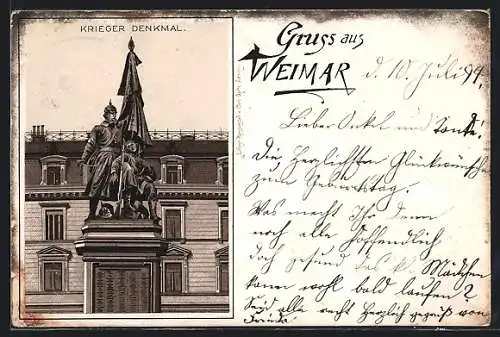 KRIEGER DENKMAL.
Gruss aus
WEIMAR
d. 10. Juli 94.
Lieber Onkel und Tante!
Die herzlichsten Glückwünsche
zum Geburtstag.
Was macht Ihr denn
noch alle Hoffendlich
doch gesund das kl. Mädchen
kann wohl bald laufen?
Seid alle recht herzlich gegrüß von